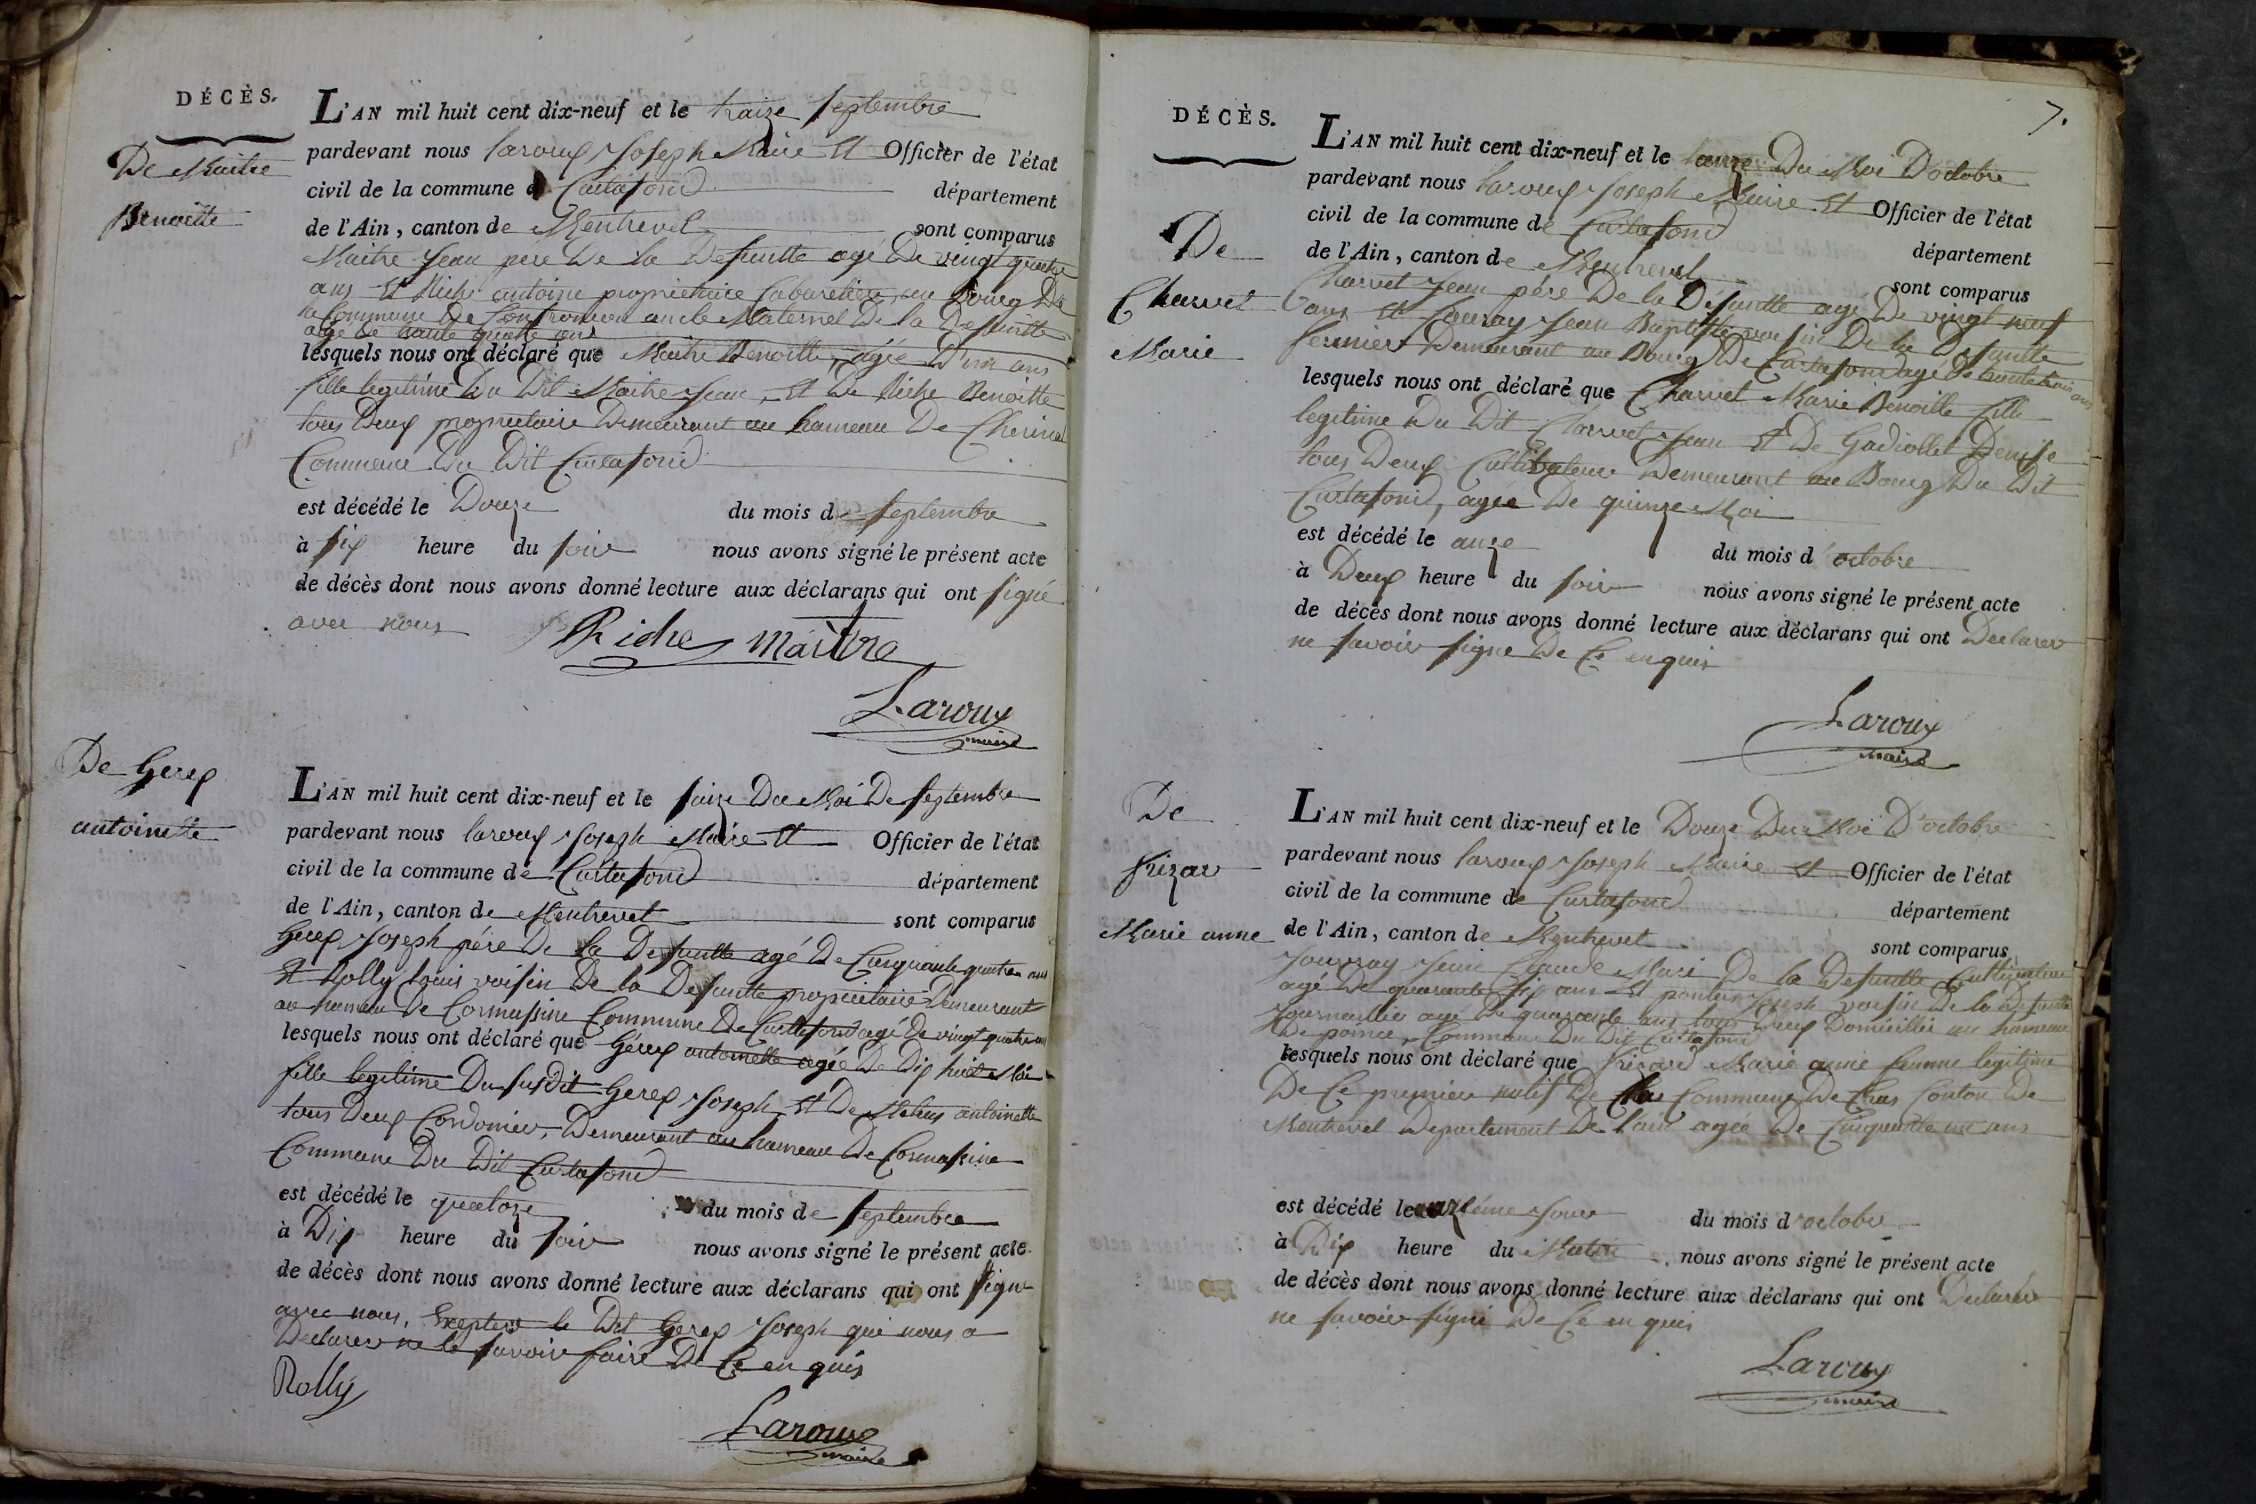 DÉCÈS.
De Maitre
Benoitte
L'AN mil huit cent dix-neuf et le traize septembre
pardevant nous Laroux Joseph Maire Et Officier de l'état
civil de la commune de Curtafond département
de l'Ain, canton de Montrevel sont comparus
Maitre Jean pere De la Defuntte agé De vingt quatre
ans Et Riche antoine propriettaire Cabaretier au Bourg De
la Commune De oncle Maternel De la Defuntte
agé de trante quatre ans
lesquels nous ont déclaré que Maitre Benoitte, agée D'un ans
fille legitime Du Dit Maitre Jean, Et De Riche Benoitte
tous Deux proprietaire Demeurant au hameau De
Commune Du Dit Curtafond
est décédé le Douze du mois de septembre
à six heure du soir nous avons signé le présent acte
de décès dont nous avons donné lecture aux déclarans qui ont signé
avec nous
Riche Maitre
Laroux
maire
De Gerex
antoinette
L'AN mil huit cent dix-neuf et le saize Du Moi De septembre
pardevant nous laroux Joseph Maire Et Officier de l'état
civil de la commune de Curtafond département
de l'Ain, canton de Montrevel sont comparus
Gerex Joseph pére De la Defuntte agé De Cinquante quatre ans
Et Rolly Louis voisin De la Defuntte proprietaire Demeurant
au hameau De Cormassine Commune De Curtafond agé De vingt quatre ans
lesquels nous ont déclaré que Gérex antoinette agée De Dix huit Moi
fille legitime Du susdit Gerex Joseph Et De antoinette
tous Deux Cordonier, Demeurant au hameau De Cormassine
Commune Du Dit Curtafond
est décédé le quatorze du mois de septembre
à Dix heure du soir nous avons signé le présent acte
de décès dont nous avons donné lecture aux déclarans qui ont signé
avec nous, Exepter le Dit Gerex Joseph qui nous a
Declarer ne le savoir faire De Ce en quis
Rolly
Laroux
maire
7.
DÉCÈS.
De
Charvet
Marie
L'AN mil huit cent dix-neuf et le Du Moi D'octobre
pardevant nous laroux Joseph Maire Et Officier de l'état
civil de la commune de Curtafond département
de l'Ain, canton de Montrevel sont comparus
Charvet Jean pére De la Défuntte agé De vingt neuf
ans Et Jean Baptiste voisin De la Défuntte
fermier Demeurant au Bourg De Curtafond agé De trante trois ans
lesquels nous ont déclaré que Charvet Marie Benoitte fille
legitime Du Dit Charvet Jean Et De Gadiollet Denise
tous Deux Cultivateur Demeurant au Bourg Du Dit
Curtafond, agée De quinze Moi
est décédé le onze du mois d'octobre
à Deux heure du soir nous avons signé le présent acte
de décès dont nous avons donné lecture aux déclarans qui ont Declarer
ne savoir signe De Ce en quis
Laroux
maire
De
frizar
Marie anne
L'AN mil huit cent dix-neuf et le Douze Du Moi D'octobre
pardevant nous laroux Joseph Maire Et Officier de l'état
civil de la commune de Curtafond département
de l'Ain, canton de Montrevel sont comparus
Claude Mari De la Defuntte Cultivateur
agé De quarante six ans Et Joseph voisin De la Defuntte
Journalier agé De quarante ans tous Deux Domicilliés au hameau
De Commune Du Dit Curtafond
lesquels nous ont déclaré que frizard Marie anne femme legitime
De Ce premier natif De Cras Commune De Cras Conton De
Montrevel Departement De l'ain agée De Cinquante un ans
est décédé le onziéme Jour du mois d'octobre
à Dix heure du Matin nous avons signé le présent acte
de décès dont nous avons donné lecture aux déclarans qui ont Declarer
ne savoir signé De Ce en quis
Laroux
maire